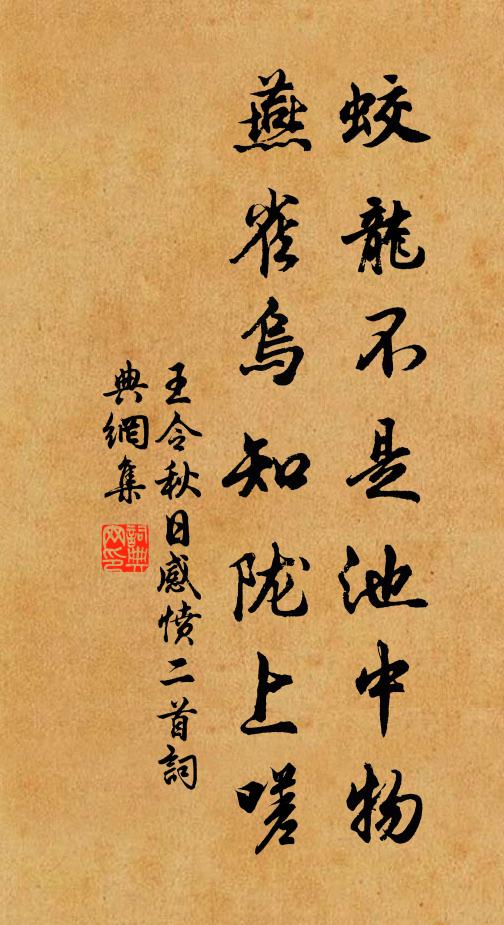 蛟龍不是池中物
燕雀烏知陇上嗟
王令秋日感憤二首詞
典網集
詞典网印